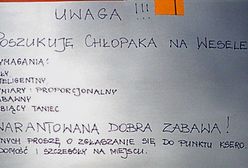 UWAGA !!!
POSZUKUJĘ CHŁOPAKA NA WESELE
WYMAGANIA:
TELIGENTNY
MIARY : PROPORCJONALNY
ABAWNY
BIĄCY TANIEC
WARANTOWANA DOBRA ZABAWA!
NYCH PROSZĘ O ZGŁASZANIE SIĘ DO PUNKTU KSERO
DOMOŚĆ I SZCZEGÓŁY NA MIEJSCU.